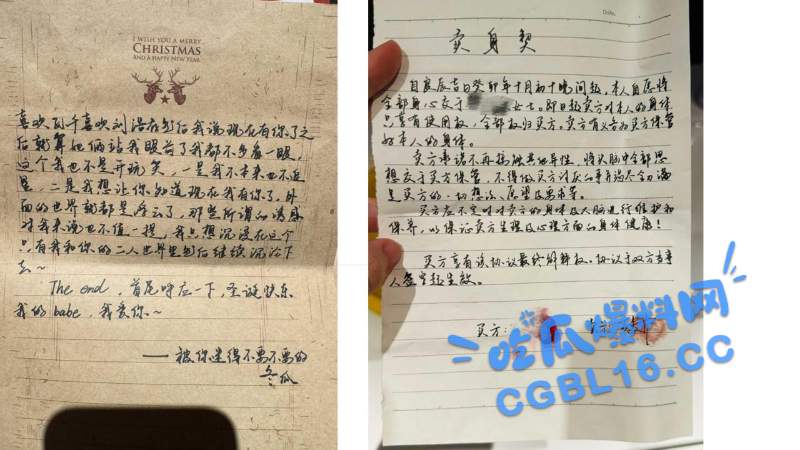 I WISH YOU A MERRY
CHRISTMAS
AND A HAPPY NEW YEAR
喜欢瓦千喜欢刘浩存的后我说现在有你了之
后就算她俩站我眼前了我都不多看一眼,
这个我也不是开玩笑,一是我不本来也不追
星,二是我想让你知道现在我有你了,外
面的世界就都是浮云了,那些所谓的诱惑
对我来说也不值一提,我只想沉浸在这个
只有我和你的二人世界里然后继续沉沦下
去~
The end,首尾呼应一下,圣诞快乐
我的babe,我爱你~
——被你迷得不要不要的
冬瓜
Date.
卖身契
自良辰吉日癸卯年十月初十晚间起,本人自愿将
全部身心交于 女士。即日起卖方对本人的身体
只享有使用权,全部权归买方。卖方有义务为买方保管
好本人的身体。
卖方承诺不再接触其他异性,将头脑中全部思
想交于买方保管,不得做买方讨厌的事并竭尽全力满
足买方的一切想法、愿望及要求等。
买方应不定时对卖方的身体及大脑进行维护和
保养,以保证卖方生理及心理方面的身体健康!
买方享有该协议最终解释权。协议于双方当事
人签字起生效。
买方:
吃瓜爆料网
CGBL16.CC